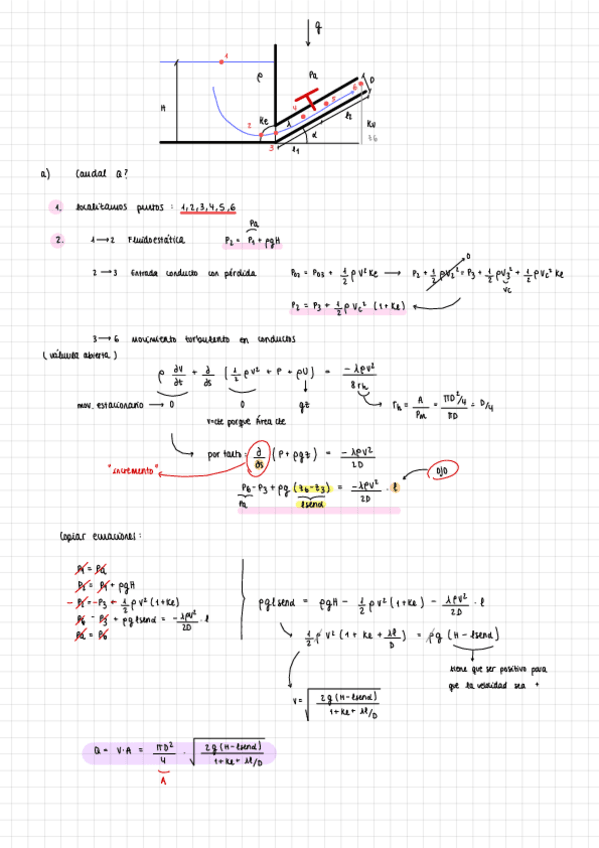 g
1
ρ
Pa
D
H
Ke
4
5
6
λ
2
α
l₂
Kv
3
l₁
a) Caudal Q?
1. Localizamos puntos : 1,2,3,4,5,6
Pa
2. 1→2 Fluidoestática P₂ = P₁ + ρgH
0
2→3 Entrada conducto con pérdida P₀₂ = P₀₃ + ½ρV²Ke → P₂ + ½ρV₂² = P₃ + ½ρV₃² + ½ρVc²Ke
Vc
P₂ = P₃ + ½ρVc² (1+Ke)
3→6 Movimiento turbulento en conductos
(válvula abierta)
ρ ∂V/∂t + ∂/∂s (½ρV² + P + ρU) = -λρV²/8rh
mov. estacionario → 0 0 gz rh = A/Pm = (πD²/4)/πD = D/4
V=cte porque Área cte
por tanto: ∂/∂s (P+ρgz) = -λρV²/2D
"incremento" OJO
P₆-P₃+ρg(z₆-z₃) = -λρV²/2D · l
Pa lsenα
Copiar ecuaciones:
P₁ = Pa
P₂ = P₁ + ρgH
-P₂ = -P₃ + ½ρV²(1+Ke)
P₆ - P₃ + ρglsenα = -λρV²/2D · l
Pa = P₆
ρglsenα = ρgH - ½ρV²(1+Ke) - λρV²/2D · l
½ρV²(1+Ke+λl/D) = ρg(H-lsenα)
tiene que ser positivo para
que la velocidad sea +
V = √(2g(H-lsenα)/(1+Ke+λl/D))
Q = V·A = πD²/4 · √(2g(H-lsenα)/(1+Ke+λl/D))
A